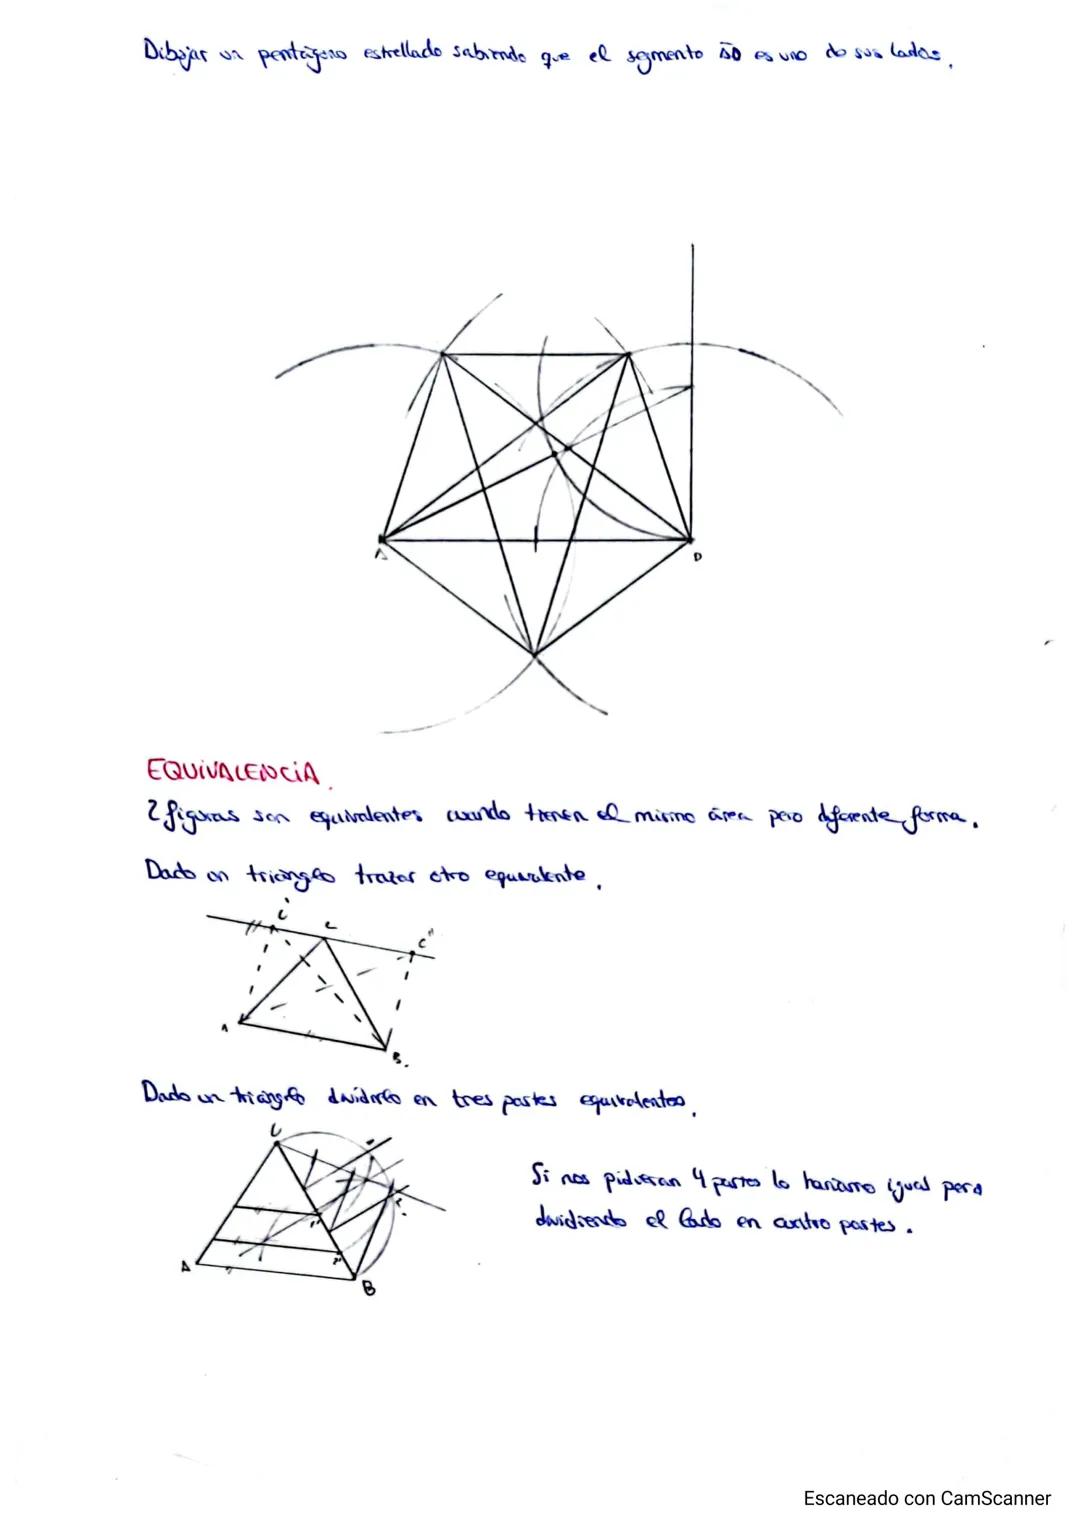 Dibujar un pentágono estrellado sabiendo que el segmento AD es uno de sus lados.
A
D
EQUIVALENCIA.
2 figuras son equivalentes cuando tienen el mismo área pero diferente forma.
Dado un triángulo trazar otro equivalente.
C'
C
C"
A
B.
Dado un triángulo dividirlo en tres partes equivalentes.
C
Si nos pidieran 4 partes lo haríamos igual pero
dividiendo el lado en cuatro partes.
A
B
Escaneado con CamScanner